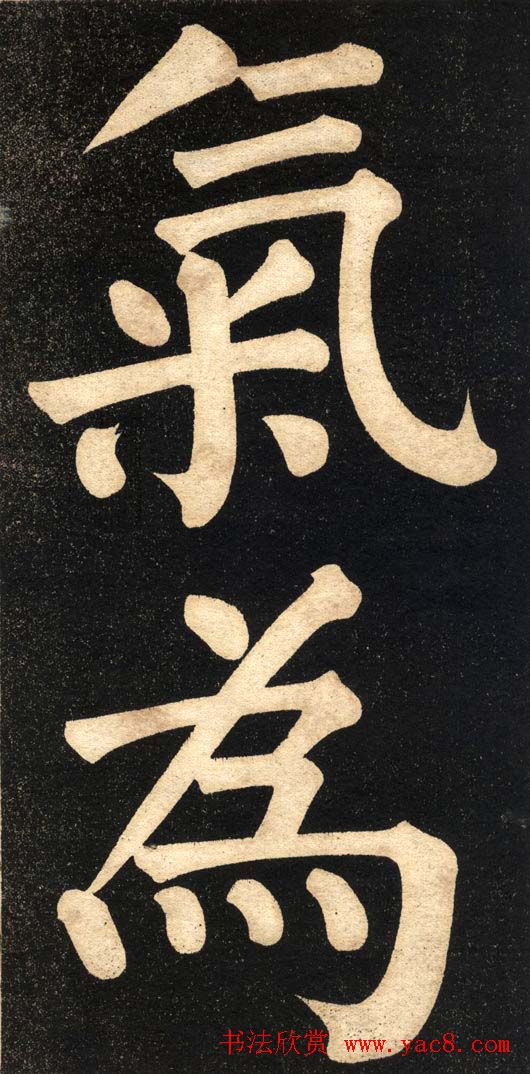 氣
為
书法欣赏 www.yac8.com